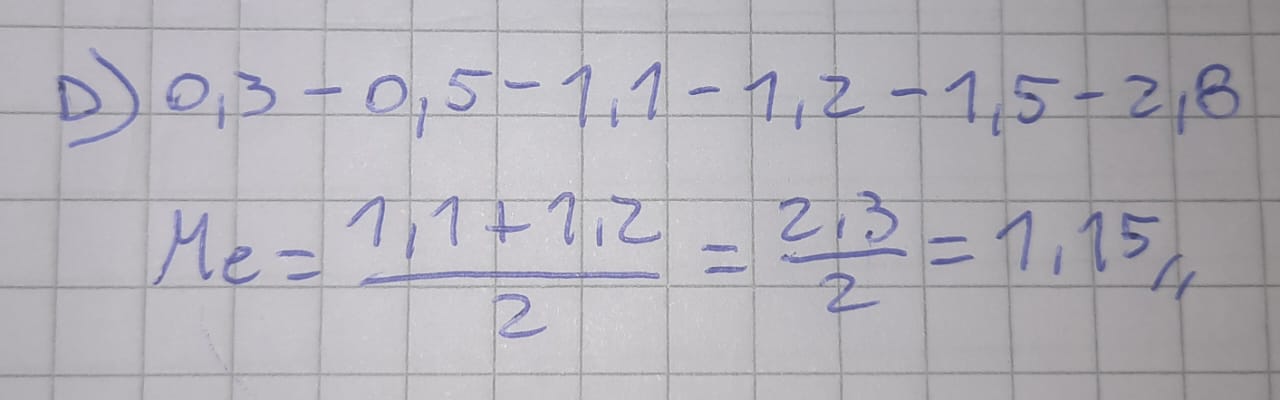 D) 0,3 - 0,5 - 1,1 - 1,2 - 1,5 - 2,8
Me = \frac{1,1 + 1,2}{2} = \frac{2,3}{2} = 1,15,,